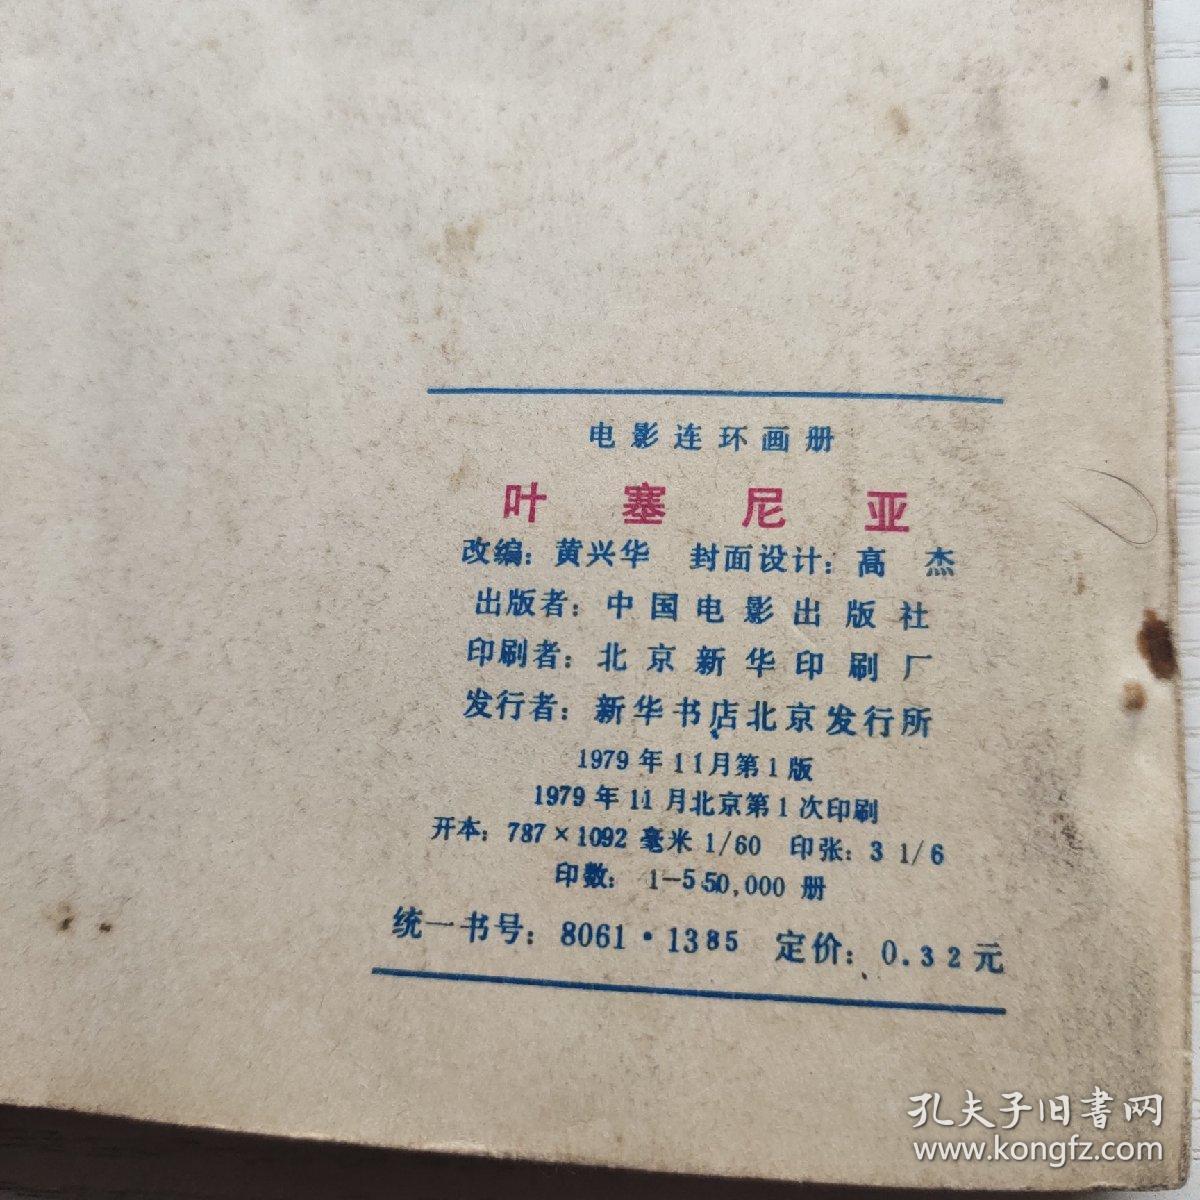 电影连环画册
叶塞尼亚
改编：黄兴华 封面设计：高杰
出版者：中国电影出版社
印刷者：北京新华印刷厂
发行者：新华书店北京发行所
1979年11月第1版
1979年11月北京第1次印刷
开本：787×1092毫米 1/60 印张：3 1/6
印数：1—550,000册
统一书号：8061·1385 定价：0.32元
孔夫子旧書网
www.kongfz.com